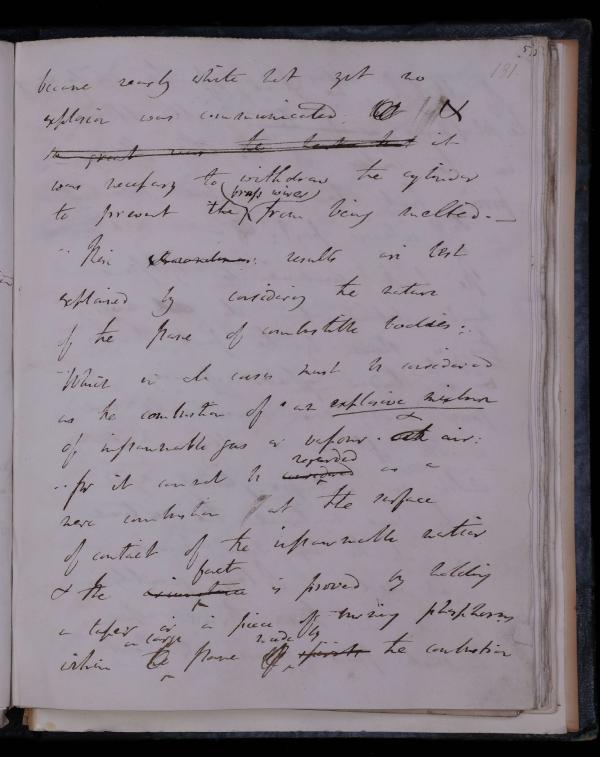 181
became nearly white hot yet no
explosion was communicated. &
so great was the heat that it
was necessary to withdraw the cylinder
brass wires
to prevent the from being melted. —
"Then results are best
explained by considering the nature
of the flame of combustible bodies:
"Which in all cases must be considered
as the combustion of an explosive mixture
of inflammable gas or vapour & air:
"for it cannot be regarded as a
mere combustion at the surface
of contact of the inflammable matter
& the fact is proved by holding
a taper or a piece of burning phosphorus
within a large flame made by the combustion